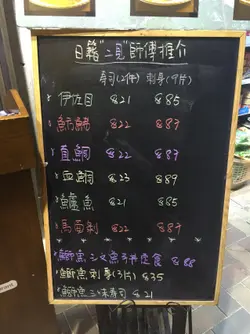 日籍"二見"師傅推介
寿司(2件) 刺身(9片)
伊佐目 $21 $85
魴鮄 $22 $87
直鯛 $22 $87
血鯛 $23 $89
鱸魚 $21 $85
馬面剥 $22 $87
鰤魚三文魚子丼定食 $88
鰤魚刺身(3片) $35
鰤魚三味寿司 $21